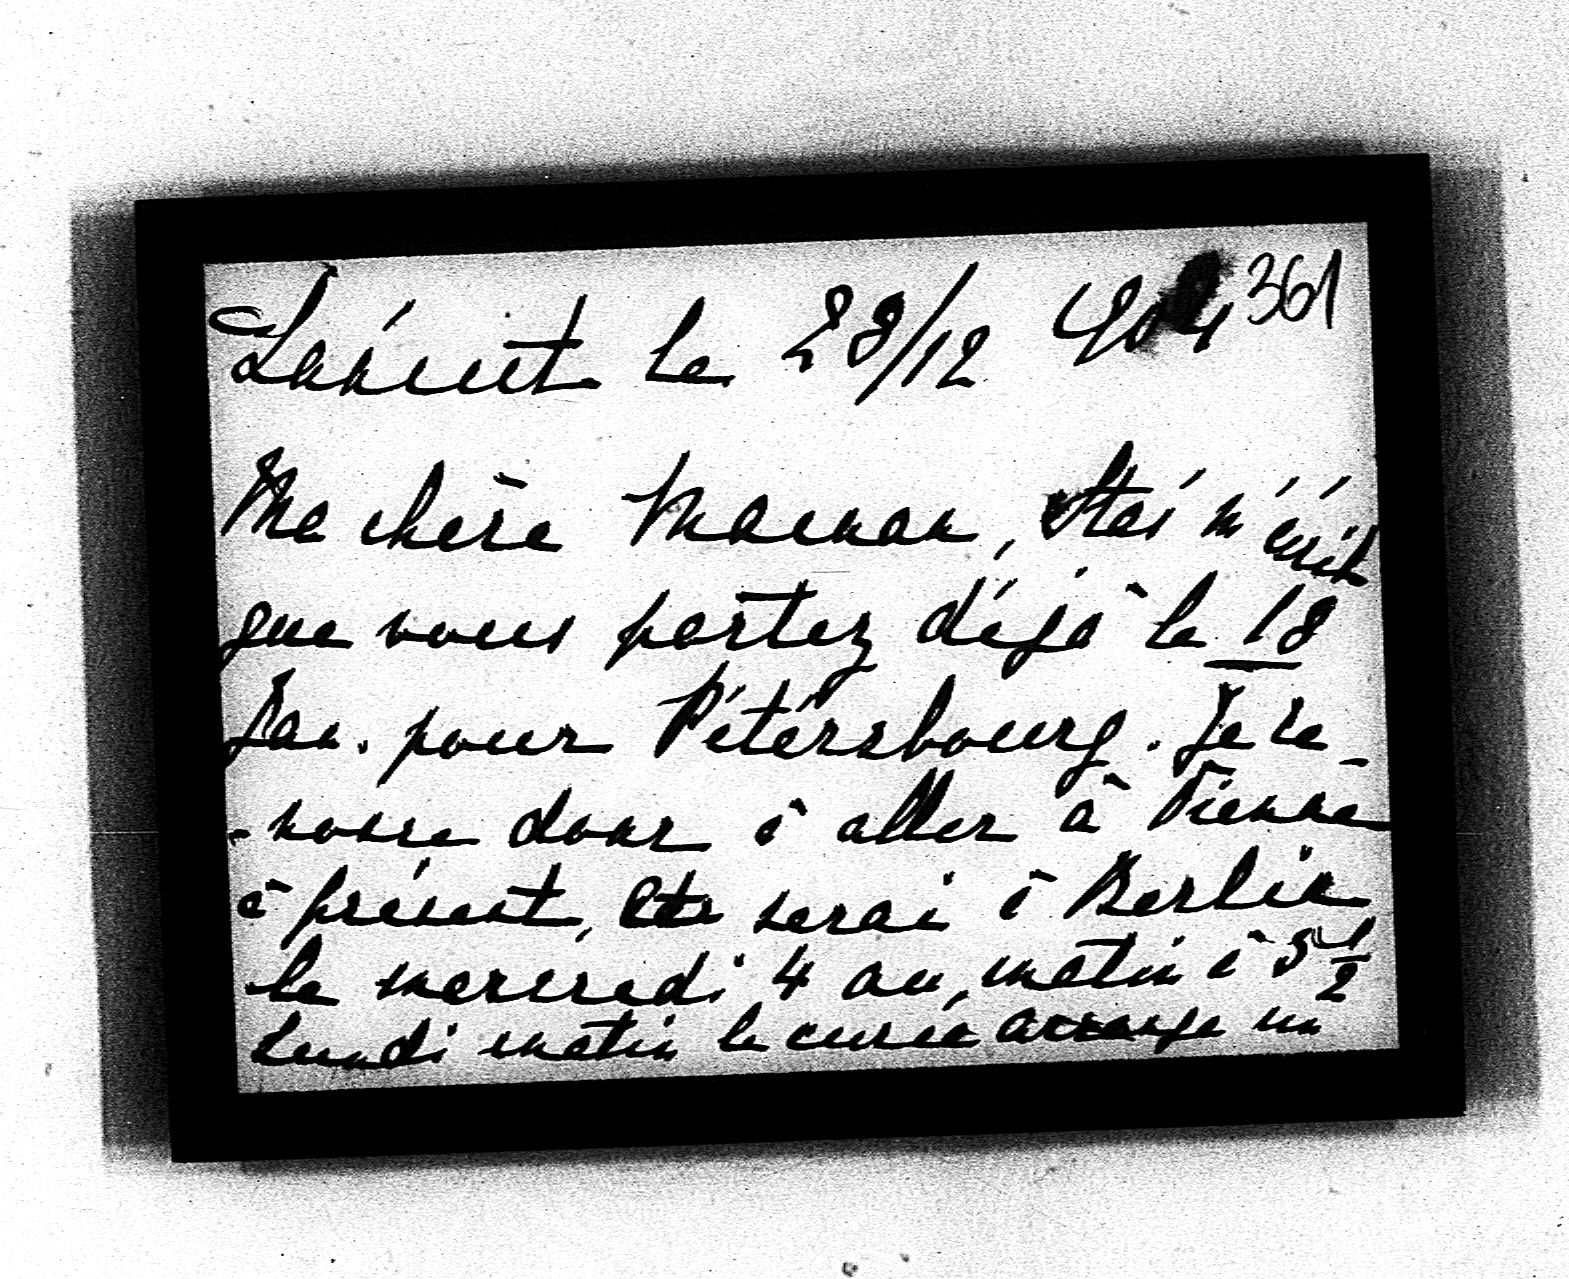 Łańcut le 28/12 904 361
Ma chère Maman, Staś m'écrit
que vous partez déjà le 18
Jan. pour Pétersbourg. Je re-
-nonce donc à aller à Vienne
à présent, et serai à Berlin
le mercredi 4 au matin à 5 1/2
Lundi matin le curé arrange un